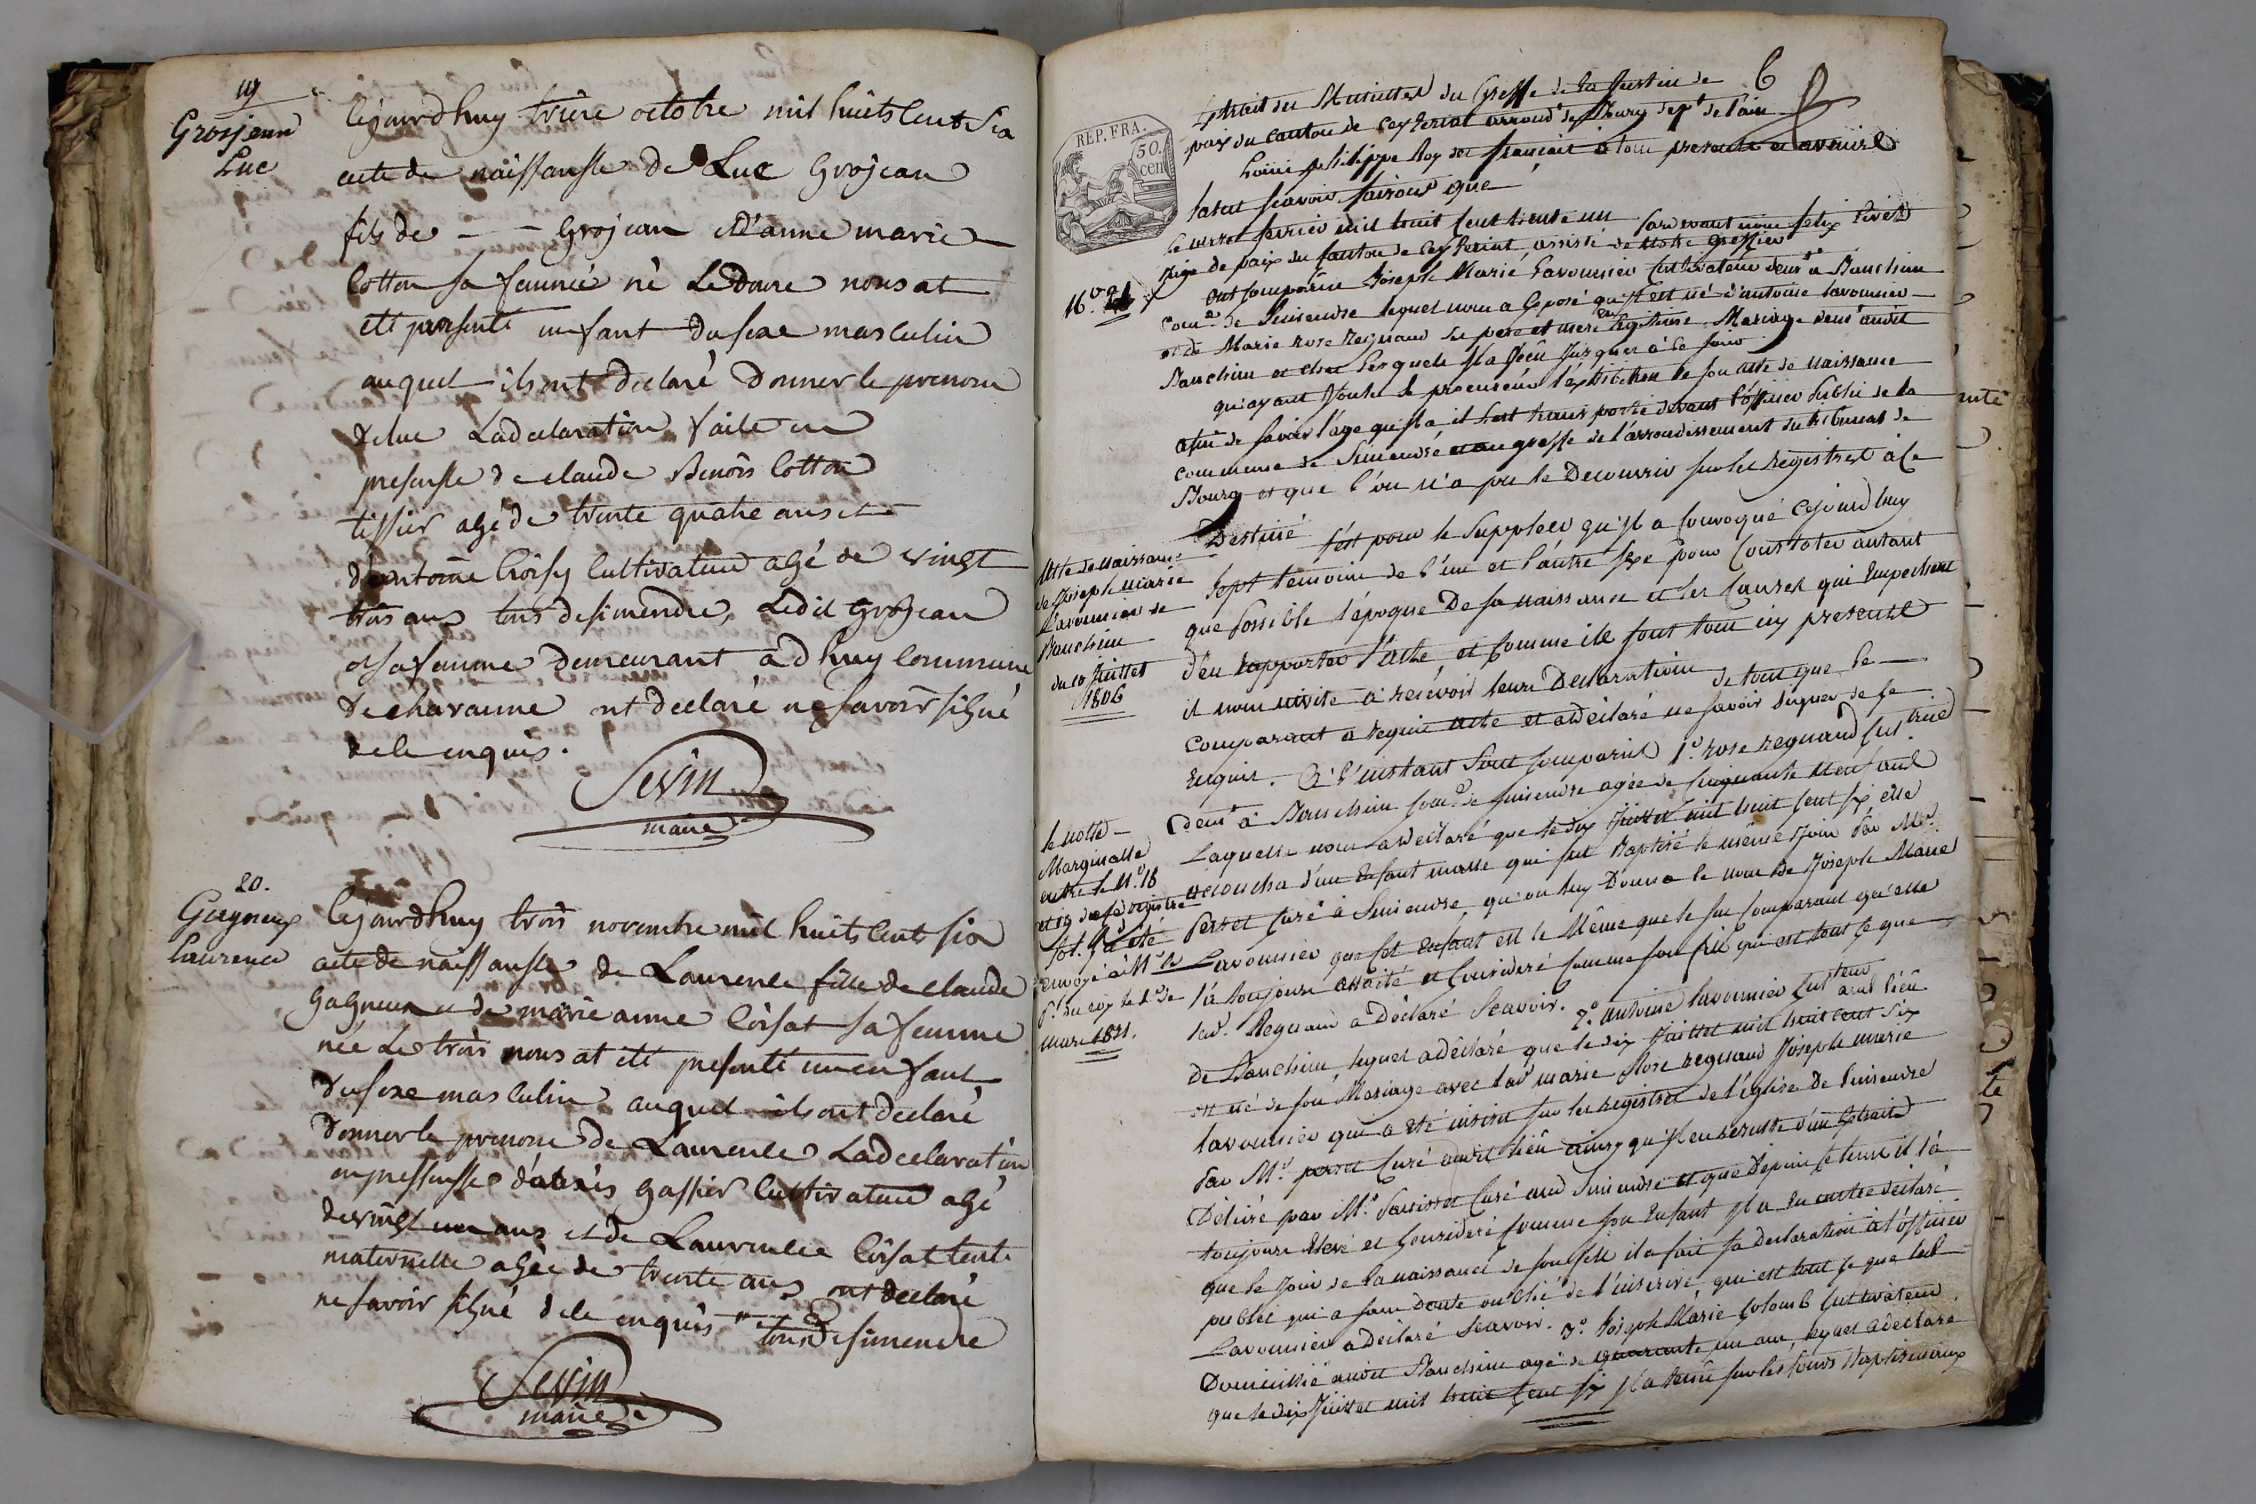 19
Grosjean
Luc
Cejourdhuy treize octobre mil huits cent six
acte de naissansse de Luc Grosjean
fils de - - Grosjean et d'anne marie
Cotton sa femme né Ledouze nous at
eté presenté un enfant du sexe masculin
auquel ils ont declaré donner le prenom
de luc La declaration faite en
presensse de claude Benoit Cotton
tissier agé de trente quatre ans et
d'antoine Croisy Cultivateur agé de vingt
trois ans tous desimendre, Ledit Grosjean
et sa femme demeurant a dhuy Commune
de chavanne ont declaré ne savoir signé
de le enquis.
Sevin
maire
20.
Gagneux
Laurence
Cejourdhuy trois novembre mil huits cent six
acte de naissansse de Laurence fille de claude
Gagneux et de marie anne Croisat sa femme
née Le trois nous at eté presenté un enfant
du sexe masculin auquel ils ont declaré
donner le prenom de Laurence La declaration
en pressensse d'alexis Gassier Cultivateur agé
de vingt un ans et de Laurence Croisat tente
maternelle agée de trente ans ont declaré
ne savoir signé de le enquis tous desimendre
Sevin
maire
6
Extrait des Minuttes du Greffe de la Justice de
paix du canton de Ceyzeriat arrond.t de Bourg dep.t de l'ain
REP. FRA.
50.
cen
Louis philippe Roy des français a tous presents et avenirs
salut scavoir faisons que
Le onze fevrier mil huit cent trente un Pardevant nous felix
juge de paix du canton de Ceyzeriat, assisté de notre greffier
16.
ont comparu Joseph Marie Lavounier Cultivateur dem.t a Banchin
com.e de Simendre lequel nous a exposé qu'il est né d'antoine Lavounier
et de Marie rose Regnaud ses pere et mere en légitime Mariage dem.t audit
Banchin et chez lesquels il a vécu jusques à ce jour
qu'ayant voulu se procurer l'expedition de son acte de naissance
afin de savoir l'age qu'il a il s'est transporté devant l'officier Public de la
commune de Simendre et au greffe de l'arrondissement du tribunal de
Bourg et que l'on n'a pu le Decouvrir sur les registres à ce
Destiné c'est pour le suppléer qu'il a convoqué cejourdhuy
Acte de naissance
de Joseph marie
Lavounier de
Banchin
du 10 Juillet
1806
sept temoins de l'un et l'autre sexe pour constater autant
que possible l'époque De sa naissance et les causes qui Empechent
d'en rapporter l'acte, et comme ils sont tous icy presents
il nous invite à recevoir leurs Declarations de tout que le
comparant a requis acte et a declaré ne savoir signer de ce
enquis. A l'instant sont comparus 1.o rose regnaud cul.trice
dem.t à Banchin com.e de Simendre agée de cinquante neuf ans
Laquelle nous a declaré que le dix Juillet mil huit cent six elle
le notte
Marginalle
entre le N.o 18
et 19 du registre
fol. a été
envoyé à M.r le
mars 1831.
accoucha d'un enfant male qui fut Baptisé le même jour Par M.r
perret Curé à Simendre qu'on luy Donna le nom de Joseph Marie
Lavounier que cet enfant est le Même que le comparant qu'elle
l'a toujours traité et consideré comme son fils qui est tout ce que
lad. Regnaud a Déclaré Scavoir. 2.o antoine Lavounier cul.teur aud. lieu
de Banchin, lequel a déclaré que le dix Juillet mil huit cent six
est né de son Mariage avec lad. marie Rose regnaud Joseph marie
Lavounier qui a eté inscrit sur les registres de l'église de Simendre
Par M.r perret Curé audit lieu ainsy qu'il en resulte d'un Extrait
Délivré par M.r Curé aud. Simendre et que Depuis ce tems il l'a
toujours Elevé et consideré comme son Enfant il a en outre déclaré
que le jour de la naissance de son fils il a fait sa declaration à l'officier
public qui a sans doute oublié de l'inscrire, qui est tout ce que led.
Lavounier a déclaré Scavoir. 3.o Joseph Marie Colomb cultivateur
Domicilié audit Banchin agé de quarante un ans, lequel a déclaré
que le dix Juillet mil huit cent six il a tenu sur les fonds Baptismaux